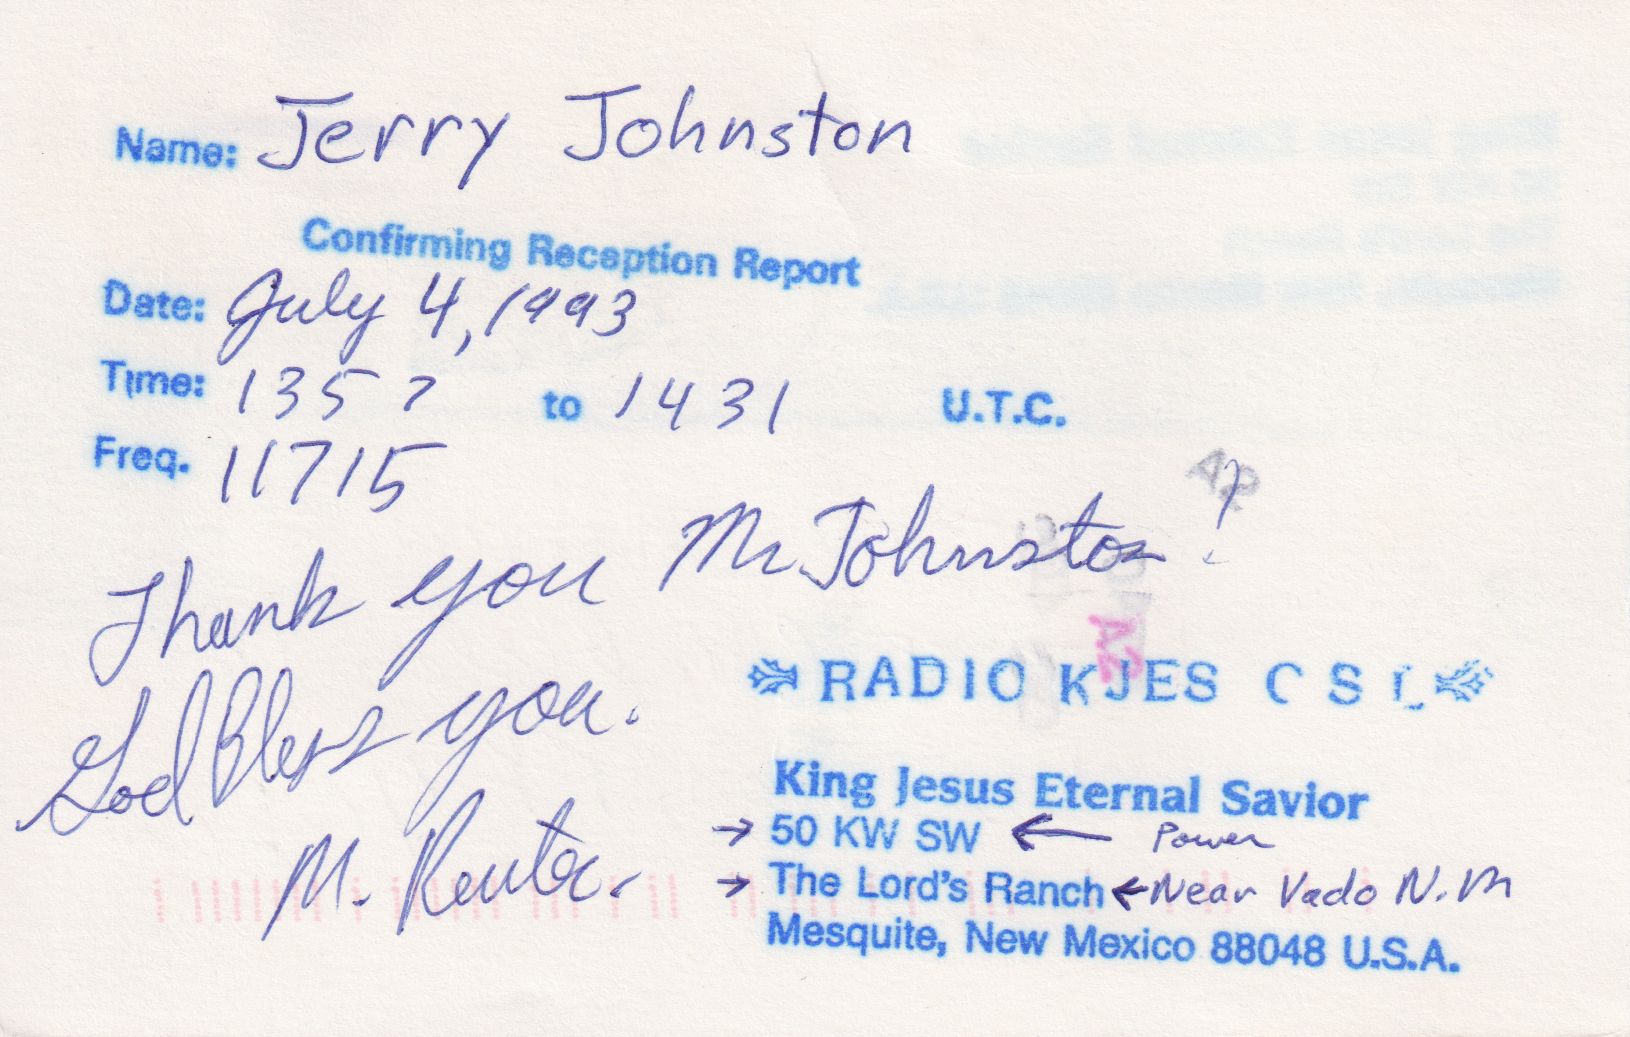 Name: Jerry Johnston
Confirming Reception Report
Date: July 4, 1993
Time: 1357 to 1431 U.T.C.
Freq. 11715
Thank you Mr. Johnston!
God Bless you.
M. Reuter.
RADIO KJES
A2
King Jesus Eternal Savior
→ 50 KW SW ← Power
→ The Lord's Ranch ← Near Vado N.M
Mesquite, New Mexico 88048 U.S.A.